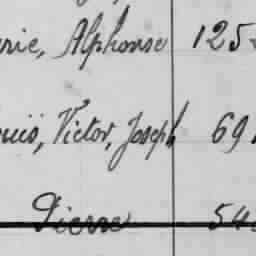 rie, Alphonse 125
ouis, Victor, Joseph 69
Pierre 54